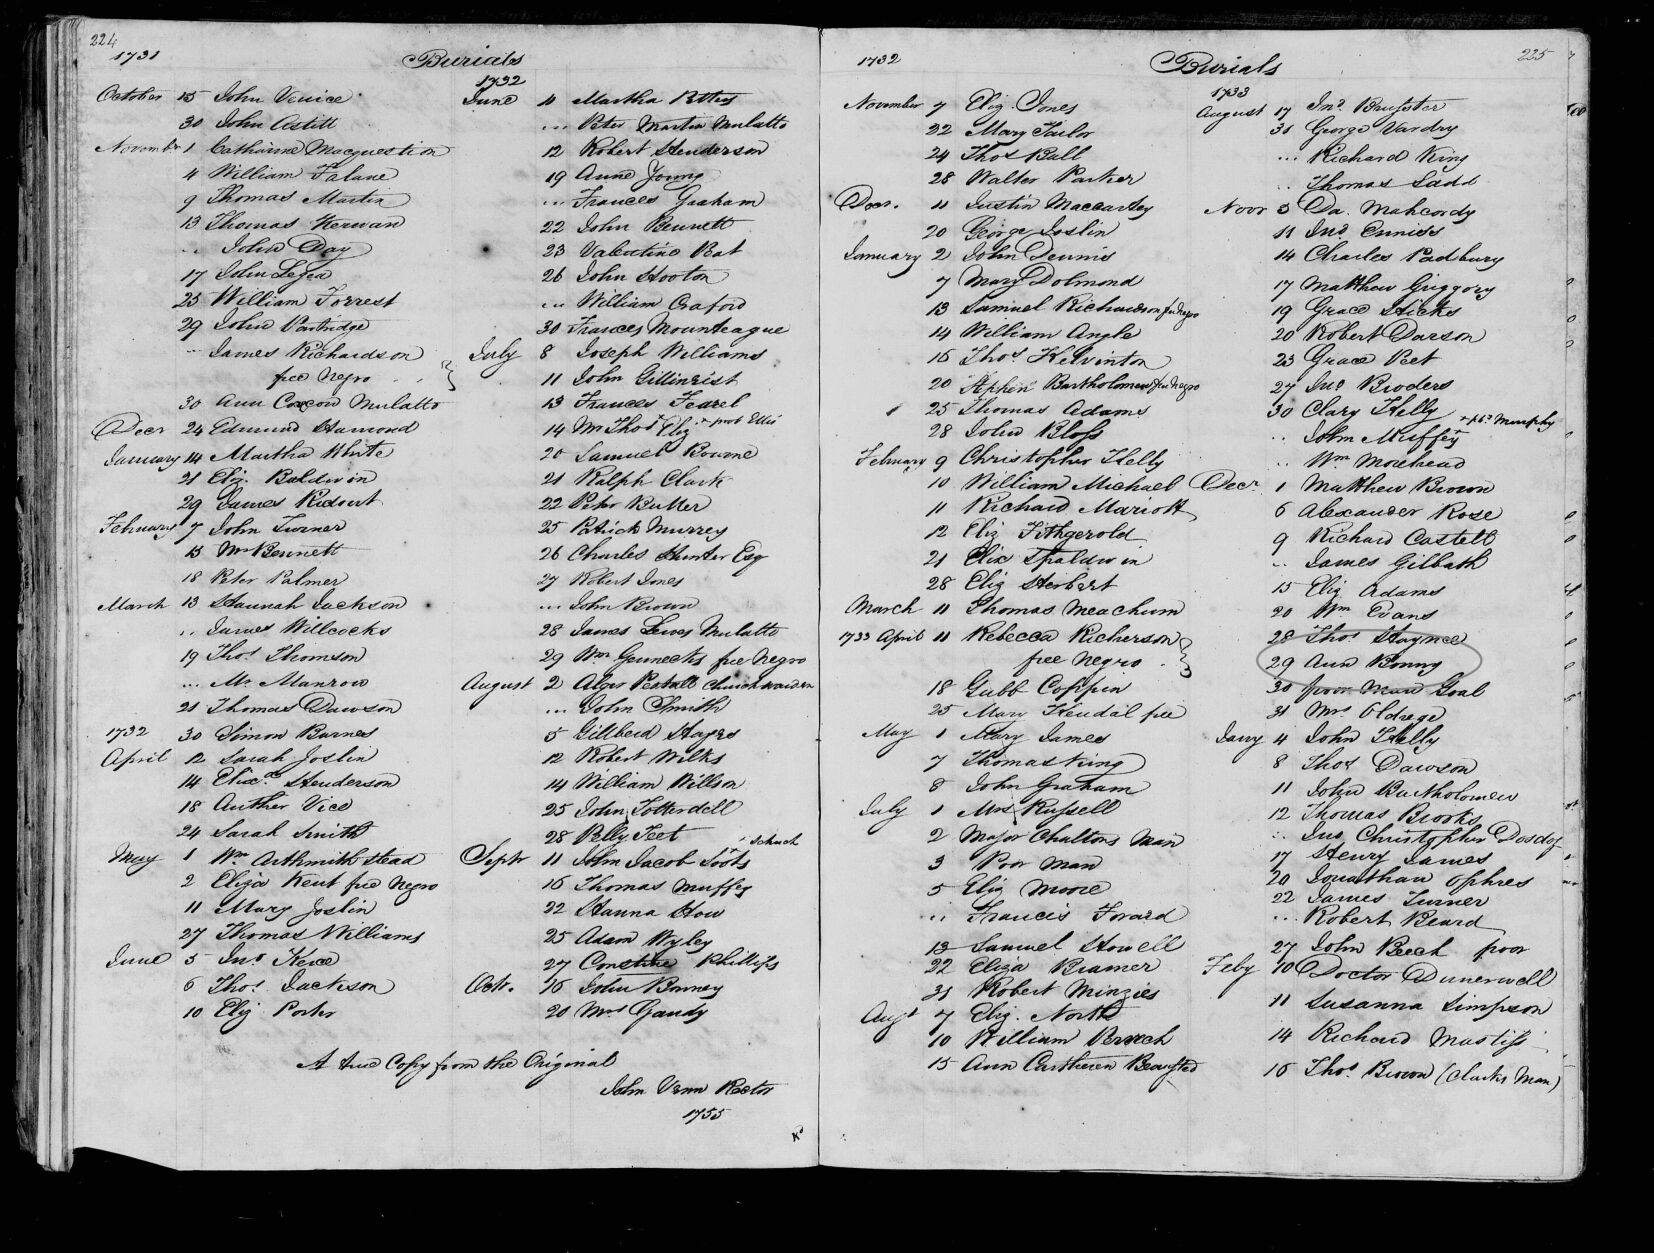 224
1731
Burials
October 15 John Venice
30 John Astill
November 1 Catharine Macquestion
4 William Falane
9 Thomas Martin
13 Thomas Kerwan
.. John Day
17 John Legea
25 William Forrest
29 John Partridge
.. James Richardson
free Negro
30 Ann Coxcow Mulatto
Decr 24 Edmund Hamond
January 14 Martha White
21 Eliz. Baldwin
29 James Ridout
February 7 John Turner
15 Mrs Bennett
18 Peter Palmer
March 13 Hannah Jackson
.. James Willcocks
19 Thos Thomson
... Mr Munrow
21 Thomas Dawson
1732 30 Simon Barnes
April 12 Sarah Joslin
14 Elizath Henderson
18 Auther Vice
24 Sarah Smith
May 1 Wm Arthmith Stead
2 Eliza Kent free Negro
11 Mary Joslin
27 Thomas Williams
June 5 Jno Kerce
6 Thos Jackson
10 Eliz Porter
1732
June 11 Martha Pettus
... Peter Martin Mulatto
12 Robert Henderson
19 Anne Young
... Frances Graham
22 John Bennett
23 Valentine Peat
26 John Hooton
... William Craford
30 Frances Mounteague
July 8 Joseph Williams
11 John Gillinrist
13 Frances Fearel
14 Mr Thos Eliz + prob Ellis
20 Samuel Bourne
21 Ralph Clark
22 Peter Butler
25 Patrick Murrey
26 Charles Hunter Esq
27 Robert Jones
... John Brown
28 James Lewes Mulatto
29 Wm Gennecks free Negro
August 2 Alger Pestall Churchwarden
... John Smith
5 Gilbeird Hayes
12 Robert Wilks
14 William Willson
25 John Totterdell
28 Polly Feet
Septr 11 John Jacob Soots + Schuch
16 Thomas Muffey
22 Hanna How
25 Adam Wyley
27 Constine Phillips
Octr. 16 John Barney
20 Mrs Gandy
A true Copy from the Original
John Venn Rector
1755
1732
Burials
225
November 7 Eliz Jones
22 Mary Tailor
24 Thos Ball
28 Walter Parker
Decr. 11 Justin Maccartey
20 George Joslin
January 2 John Dennis
7 Mary Dolmond
13 Samuel Richardson free Negro
14 William Angle
16 Thos Kelvinton
20 Stephen Bartholomew free Negro
25 Thomas Adams
28 John Bloss
February 9 Christopher Kelly
10 William Michael
11 Richard Mariott
12 Eliz Fithgerold
21 Eliz Spaldwin
28 Eliz Herbert
March 11 Thomas Meachum
1733 April 11 Rebecca Richerson
free Negro
18 Gubb Coppin
25 Mary Kendal free
May 1 Mary James
7 Thomas King
8 John Graham
July 1 Mrs Russell
2 Major Chaltons Man
3 Poor Man
5 Eliz Moore
... Francis Forard
12 Samuel Howell
22 Eliza Bramer
31 Robert Minzies
Augt 7 Eliz. North
10 William Perrech
15 Ann Cartheren Bransted
1733
August 17 Jno Brufster
31 George Vardry
... Richard King
.. Thomas Ladd
Novr 3 Da. Mahcordy
11 Jno Enniss
14 Charles Padbury
17 Matthew Griggory
19 Grace Hicks
20 Robert Darson
23 Grace Peet
27 Jno Broders
30 Clary Kelly
.. John Muffey + pbs Murphy
.. Wm Morehead
Decr 1 Matthew Brown
6 Alexander Rose
9 Richard Castell
.. James Gilbath
15 Eliz Adams
20 Wm Evans
28 Thos Haynes
29 Ann Bonny
30 poor Man Goal
31 Mrs Oldrege
Janry 4 John Kelly
8 Thos Dawson
11 John Bartholomew
12 Thomas Brooks
... Jno Christopher Dosdof
17 Henry James
20 Jonathan Ophres
22 James Turner
... Robert Beard
27 John Beech poor
Feby 10 Doctor Dunerwell
11 Susanna Simpson
14 Richard Mastiss
16 Thos Brown (Clarks Man)